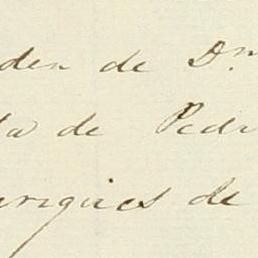 den de Dm
ta de Pedr
nriques de